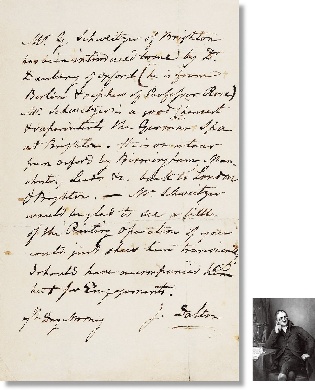 Mr G. Schweitzer of Brighton
has been introduced to me by Dr.
Daubeny of Oxford (he is from
Berlin & nephew of Professor Rose)
Mr Schweitzer is a good chemist
& superintends the German Spa
at Brighton. He is on a tour
from Oxford to Birmingham, Man-
chester, Leeds &c. back to London
& Brighton. — Mr Schweitzer
would be glad to see a little
of the Printing operation if you
could just shew him
I should have accompanied him
but for Engagements.
J. Dalton